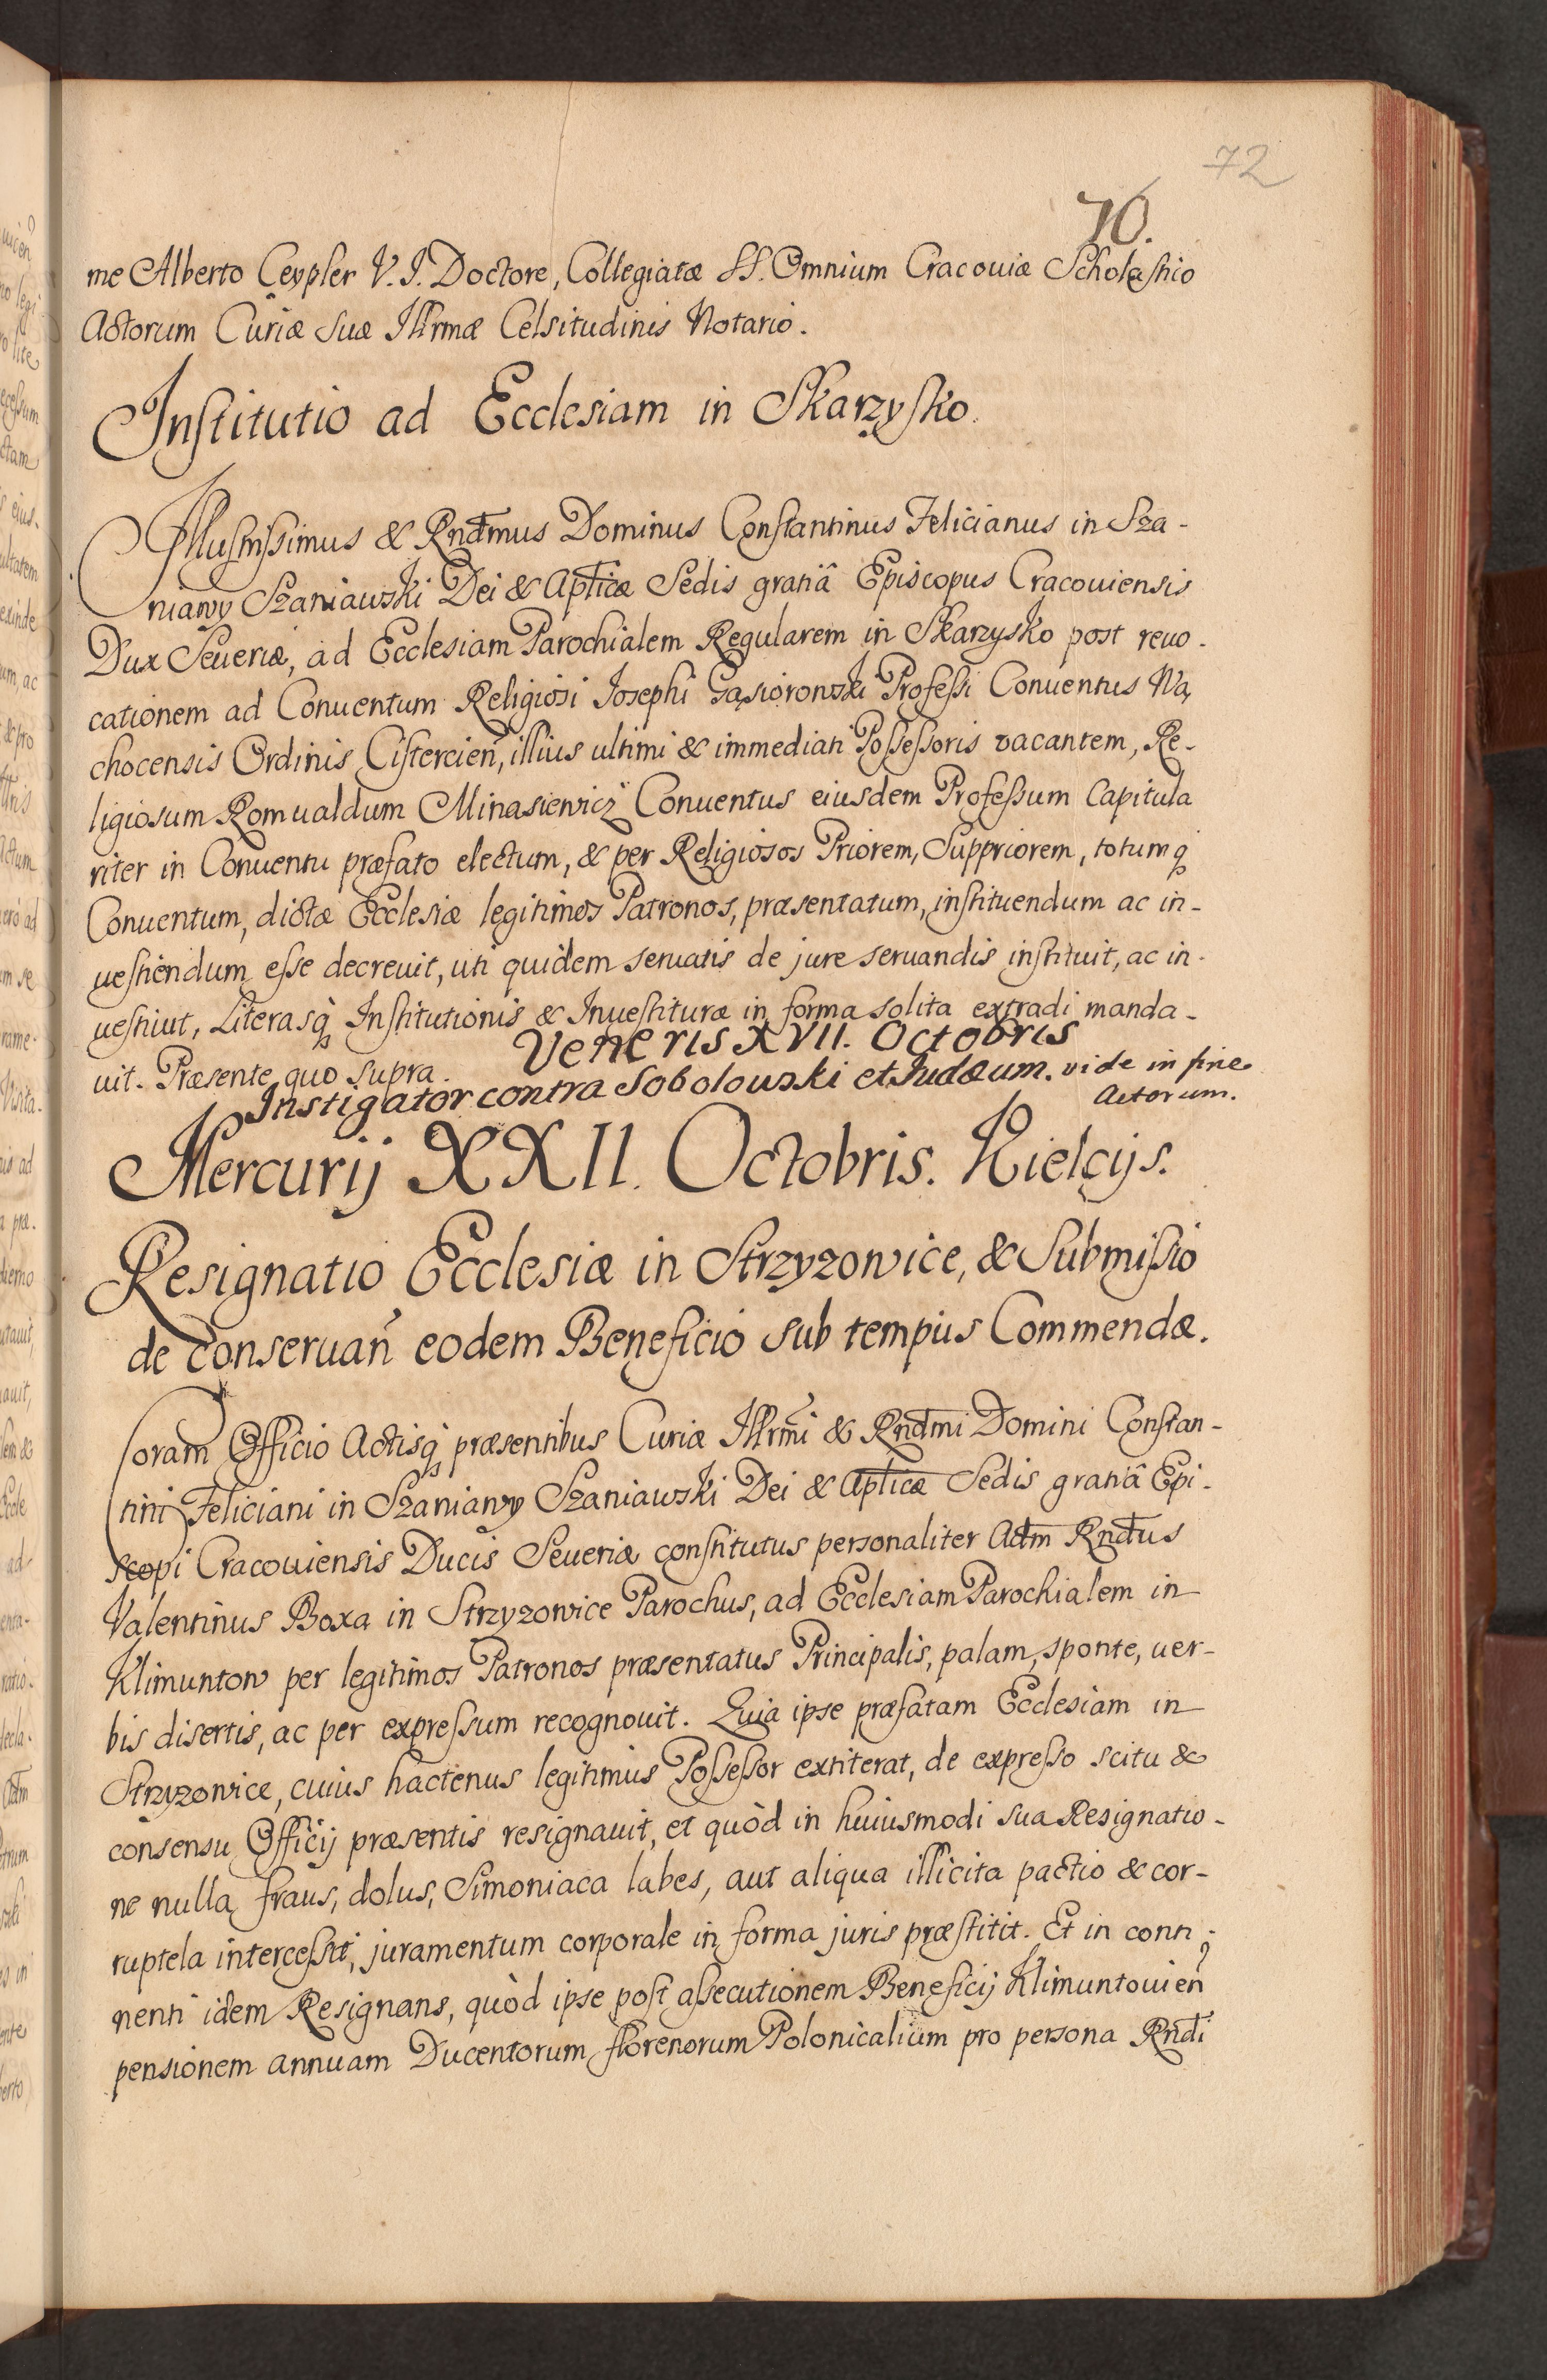 72
76.
me Alberto Ceypler V. J. Doctore, Collegiatæ SS. Omnium Cracouiæ Scholastico
Actorum Curiæ suæ Illrmæ Celsitudinis Notario.
Institutio ad Ecclesiam in Skarzysko.
Illustrissimus & Rndmus Dominus Constantinus Felicianus in Sza-
niawy Szaniawski Dei & Aplicæ Sedis gratiâ Episcopus Cracouiensis
Dux Seueriæ, ad Ecclesiam Parochialem Regularem in Skarzysko post reuo-
cationem ad Conuentum Religiosi Josephi Gąsioronski Professi Conuentus Wą
chocensis Ordinis Cistercien, illius ultimi & immediati Possessoris vacantem, Re-
ligiosum Romualdum Minasiewicz Conuentus eiusdem Professum Capitula
riter in Conuentu præfato electum, & per Religiosos Priorem, Suppriorem, totumq
Conuentum, dictæ Ecclesiæ legitimos Patronos, præsentatum, instituendum ac in-
uestiendum esse decreuit, uti quidem seruatis de jure seruandis instituit, ac in-
uestiuit, Literasq Institutionis & Inuestituræ in forma solita extradi manda-
uit. Præsente quo supra.
Veneris XVII. Octobris
Instigator contra Sobolowski et Judæum. vide in fine
Actorum.
Mercurij XXII. Octobris. Kielcijs.
Resignatio Ecclesiæ in Strzyzowice, & Submissio
de conseruañ eodem Beneficio sub tempus Commendæ.
Coram Officio Actisq præsentibus Curiæ Illrmi & Rndmi Domini Constan-
tini Feliciani in Szaniawy Szaniawski Dei & Aplicæ Sedis gratiâ Epi-
scopi Cracouiensis Ducis Seueriæ constitutus personaliter Adm Rndus
Valentinus Boxa in Strzyzowice Parochus, ad Ecclesiam Parochialem in
Klimuntow per legitimos Patronos præsentatus Principalis, palam, sponte, uer-
bis disertis, ac per expressum recognouit. Quia ipse præfatam Ecclesiam in
Strzyzowice, cuius hactenus legitimus Possessor extiterat, de expresso scitu &
consensu Officij præsentis resignauit, et quòd in huiusmodi sua Resignatio-
ne nulla fraus, dolus, Simoniaca labes, aut aliqua illicita pactio & cor-
ruptela intercessit, juramentum corporale in forma juris præstitit. Et in conti-
nenti idem Resignans, quòd ipse post assecutionem Beneficij Klimuntouieñ
pensionem annuam Ducentorum florenorum Polonicalium pro persona Rndi